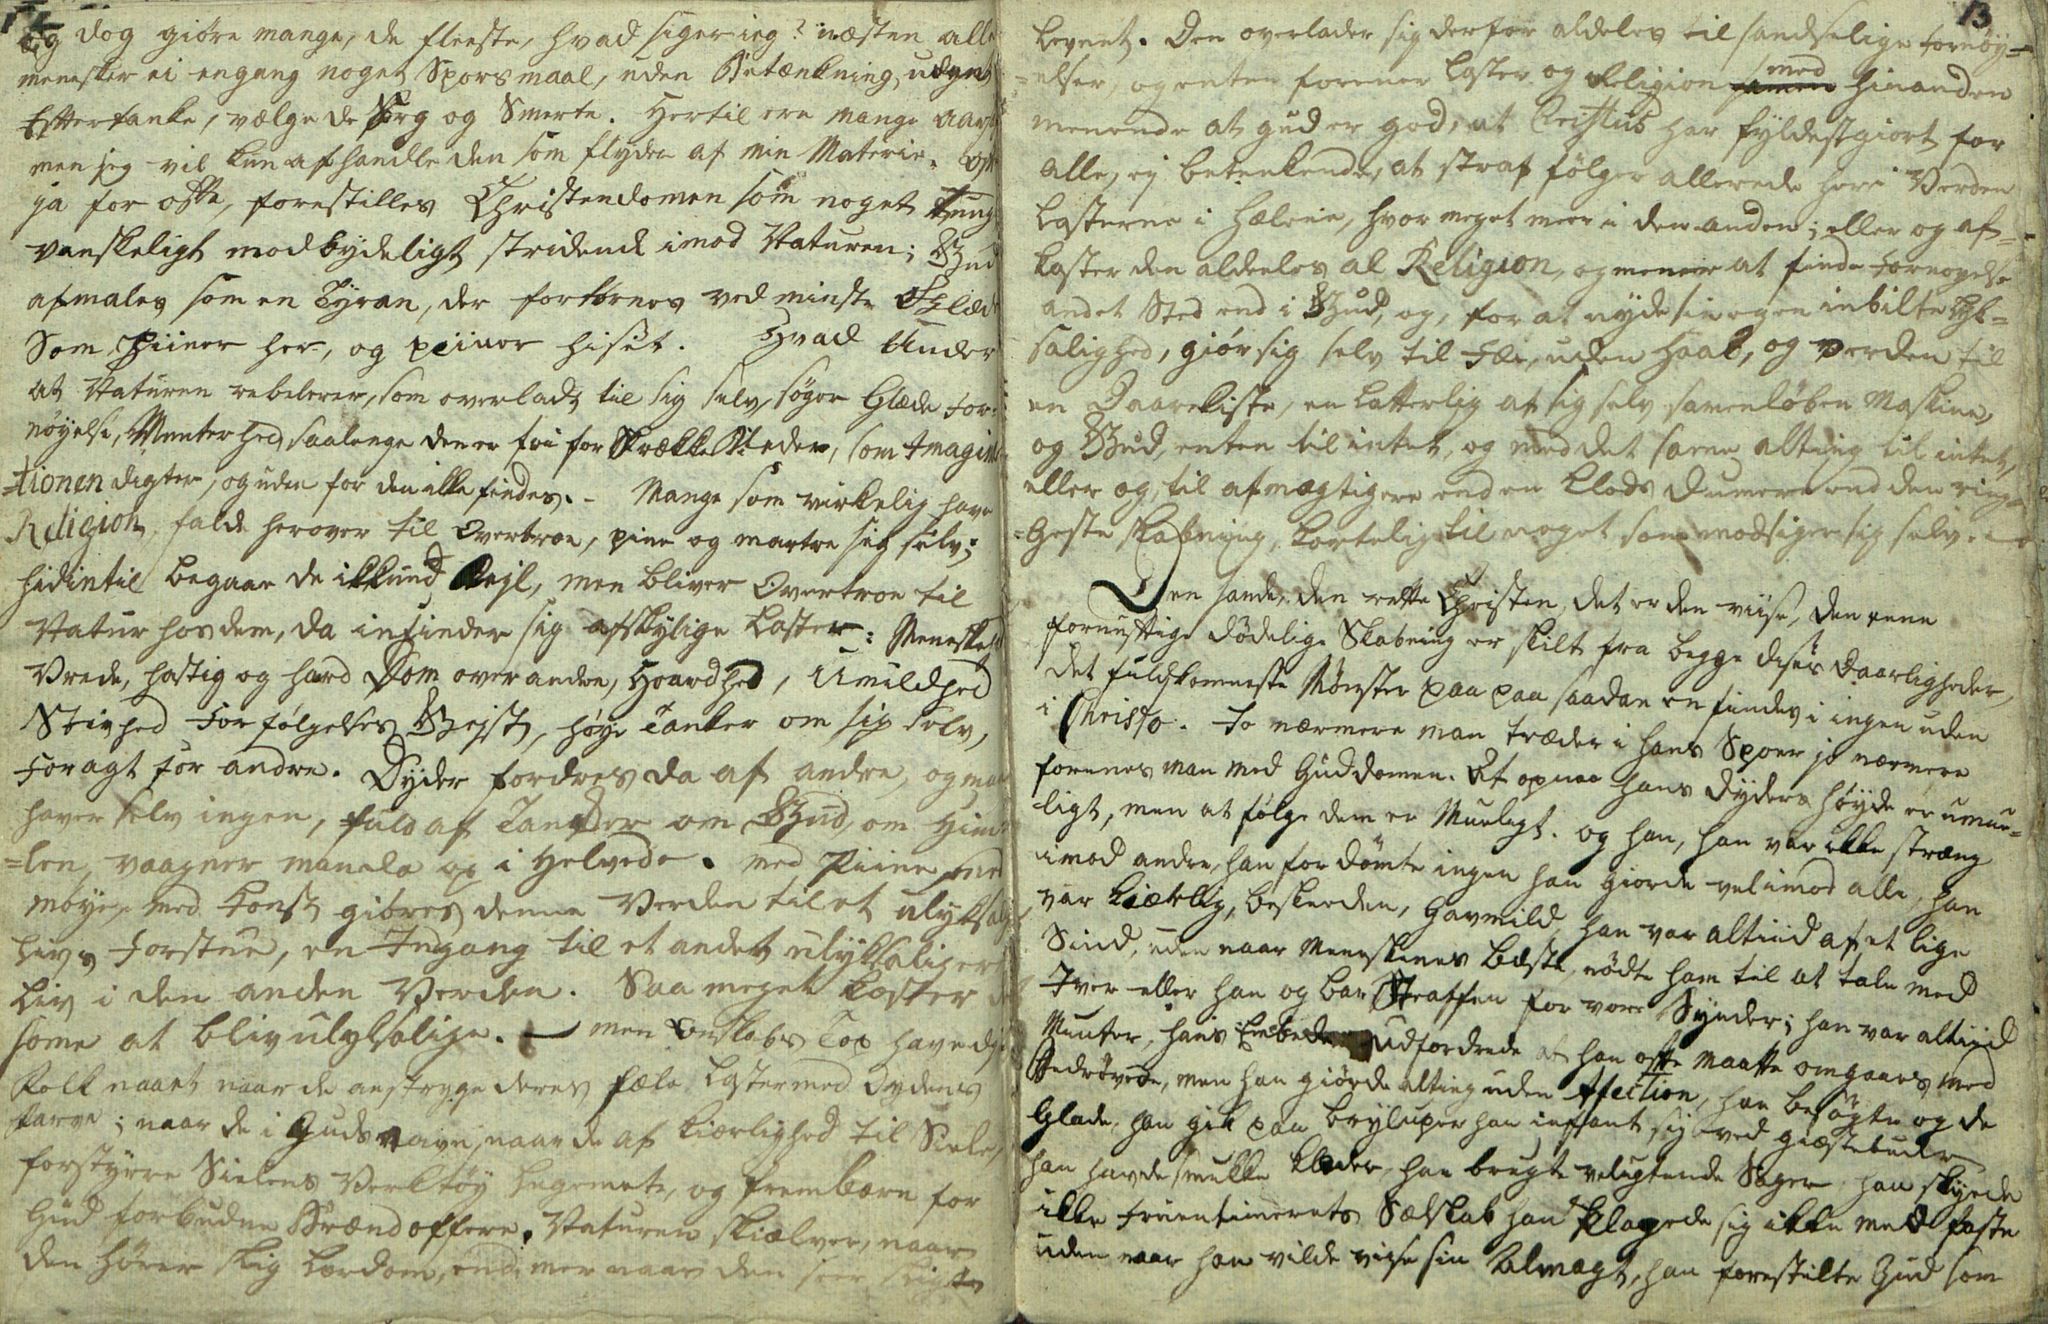 12
og dog giøre mange, de fleeste, hvad siger ieg? næsten alle
menesker ei engang noget Sporsmaal, uden Betænkning, uden
Eftertanke, vælge de Sorg og Smerte. Hertil ere mange Aars
men jeg vil kun afhandle den som flyder af min Materie. Ofte
ja for ofte, forestilles Christendomen som noget tungt
vanskeligt modbydeligt stridende imod Naturen; Gud
afmales som en Tyran, der fortørnes ved minste Glæde
Som piiner her, og piiner hisset. Hvad Under
at Naturen rebelerer, som overladt til sig selv, søger Glæde For-
nøyelse, Munterhed, saalenge den er fri for Skrække Bileder, som Imagina
=tionen digter, og uden for den ikke findes. - Mange som virkelig have
Religion, falde herover til Overtroe, pine og martre sig selv;
hidintil begaar de ikkund Fejl, men bliver Overtroe til
Natur hos dem, da infinder sig afskylige Laster: Menneske
Vrede, hastig og hard Dom over andre, Haardhed, Umildhed
Stivhed Forfølgelses Gejst, høye Tanker om sig selv,
Foragt for andre. Dyder fordres da af andre, og man
haver selv ingen, fuld af Tanker om Gud, om Him=
=len, vaagner man op i Helvede. med Piine med
møye, med Konst giøres denne Verden til et ulyksal
livs Forstue, en Ingang til et andet ulyksaliger
Liv i den anden Verden. Saa meget koster
some at bliv ulyksalige. — men Ondskabs Top have di
Folk naaet naar de anstryge deres fæle Laster med Dydens
farve; naar de i Guds navn, naar de af Kiærlighed til Siele,
forstyrre Sielens Verktøy Legemet, og frembære for
Gud forbudne Brændoffere. Naturen skiælver, naar
den hører slig Lærdom, end mer naar den seer sligt
13
Levnet. Den overlader sig derfor aldeles til sandselige Fornøy=
=elser, og enten forener Laster og Religion med hinanden
menende at gud er god, at Cristus har fyldestgiort for
alle, ej betenkende, at straf følger allerede her i Verden
Lasterne i Hælene, hvor meget meer i den anden; eller og af=
kaster den aldeles al Religion, og mener at finde Fornøyelse
andet Sted end i Gud, og, for at nyde sin egen inbilte Lyk=
salighed, giør sig selv til Fæe, uden Haab, og verden til
en Daarekiste, en Latterlig af sig selv samenløben Maskine,
og Gud, enten til intet, og med det same alting til intet,
eller og, til afmægtigere end en Klods dumere end den ring=
=geste skabning, kortelig til noget som modsiger sig selv.
Den sande, den rette Christen, det er den viise, den ene
fornuftige dødelige Skabning er skilt fra begge disse Daarligheder,
det fuldkomneste Mønster paa paa saadan en findes i ingen uden
i Christo. Jo nærmere man træder i hans Spoer jo nærmere
forenes man med Guddomen. At opnaa hans Dyders høyde er umue=
ligt, men at følge dem er Mueligt. og han, han var ikke stræng
imod andre, han fordømte ingen han giorde vel imod alle, han
var kiærlig, beskeeden, Gavmild, han var altiid af et lige
Sind, uden naar Menneskenes Bedste, nødte ham til at tale med
Iver eller han og bar Straffen for vore Synder; han var altiid
Munter, hans Embede udfordrede at han ofte Maatte omgaaes med
Bedrøvede, men han giørde alting uden Afection, han besøgte og de
Glade, han gik paa bryluper han infant sig ved giæstebuder
han havde smukke Kleder, han brugte velugtende Sager han skyede
ikke Fruentimerets Selskab han plagede sig ikke med faste
uden naar han vilde viise sin Almagt, han forestilte Gud som